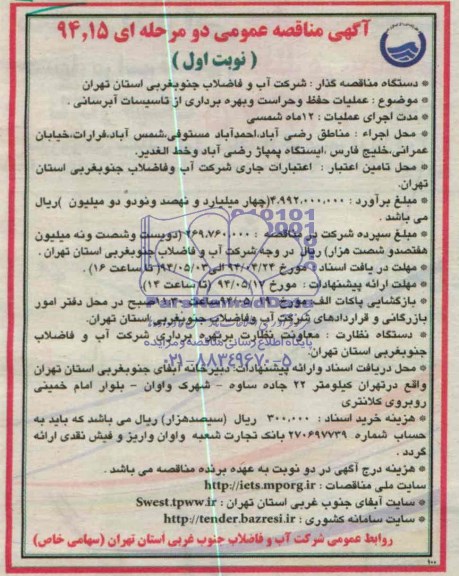 آگهی مناقصه عمومی دو مرحله ای ۹۴,۱۵
( نوبت اول )
* دستگاه مناقصه گذار : شرکت آب و فاضلاب جنوبغربی استان تهران
* موضوع : عملیات حفظ وحراست وبهره برداری از تاسیسات آبرسانی .
* مدت اجرای عملیات : ۱۲ماه شمسی
* محل اجراء : مناطق رضی آباد،احمدآباد مستوفی،شمس آباد،فرارات،خیابان
عمرانی،خلیج فارس ،ایستگاه پمپاژ رضی آباد وخط الغدیر.
* محل تامین اعتبار : اعتبارات جاری شرکت آب وفاضلاب جنوبغربی استان
تهران.
* مبلغ برآورد : ۴.۹۹۲.۰۰۰.۰۰۰(چهار میلیارد و نهصد ونودو دو میلیون )ریال
می باشد .
* مبلغ سپرده شرکت در مناقصه : ۲۶۹.۷۶۰.۰۰۰ (دویست وشصت ونه میلیون
هفتصدو شصت هزار) ریال در وجه شرکت آب و فاضلاب جنوبغربی استان تهران .
* مهلت در یافت اسناد : مورخ ۹۴/۰۴/۲۴ الی ۹۴/۰۵/۰۳( تا ساعت ۱۶) .
* مهلت ارائه پیشنهادات : مورخ ۹۴/۰۵/۱۷ (تا ساعت ۱۴)
* بازگشایی پاکات الف مورخ ۹۴/۰۵/۱۹ ساعت صبح در محل دفتر امور
بازرگانی و قراردادهای شرکت آب وفاضلاب جنوبغربی استان تهران.
* دستگاه نظارت : معاونت نظارت بر بهره برداری شرکت آب و فاضلاب
جنوبغربی استان تهران.
پایگاه اطلاع رسانی مناقصه و مزایده
۰۲۱-۸۸۳۴۹۶۷۰-۵
* محل دریافت اسناد وارائه پیشنهادات دبیرخانه آبفای جنوبغربی استان تهران
واقع درتهران کیلومتر ۲۲ جاده ساوه – شهرک واوان – بلوار امام خمینی
روبروی کلانتری
* هزینه خرید اسناد : ۳۰۰.۰۰۰ ریال (سیصدهزار) ریال می باشد که باید به
حساب شماره ۲۷۰۶۹۷۷۳۹ بانک تجارت شعبه واوان واریز و فیش نقدی ارائه
گردد .
* هزینه درج آگهی در دو نوبت به عهده برنده مناقصه می باشد .
سایت ملی مناقصات : http://iets.mporg.ir
* سایت آبفای جنوب غربی استان تهران : Swest.tpww.ir
* سایت سامانه کشوری : http://tender.bazresi.ir
روابط عمومی شرکت آب و فاضلاب جنوب غربی استان تهران (سهامی خاص)
۱۰۰